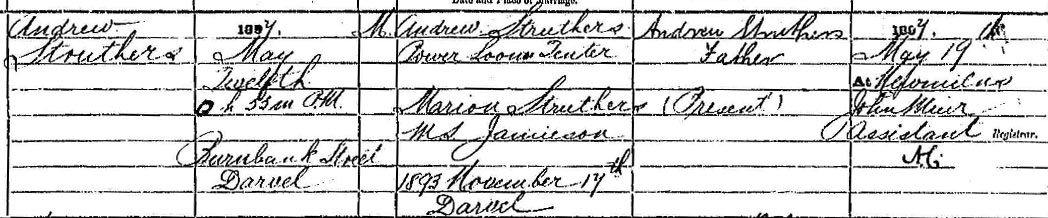 Date and Place of Marriage.
Andrew
Struthers
1897.
May
Twelfth
h 33 m P.M.
Burnbank Street
Darvel
M.
Andrew Struthers
Power Loom Tenter
Marion Struthers
M.S. Jamieson
1893 November 17th
Darvel
Andrew Struthers
Father
(Present)
1897.
May 19th
At Newmilns
John Muir
Assistant Registrar.